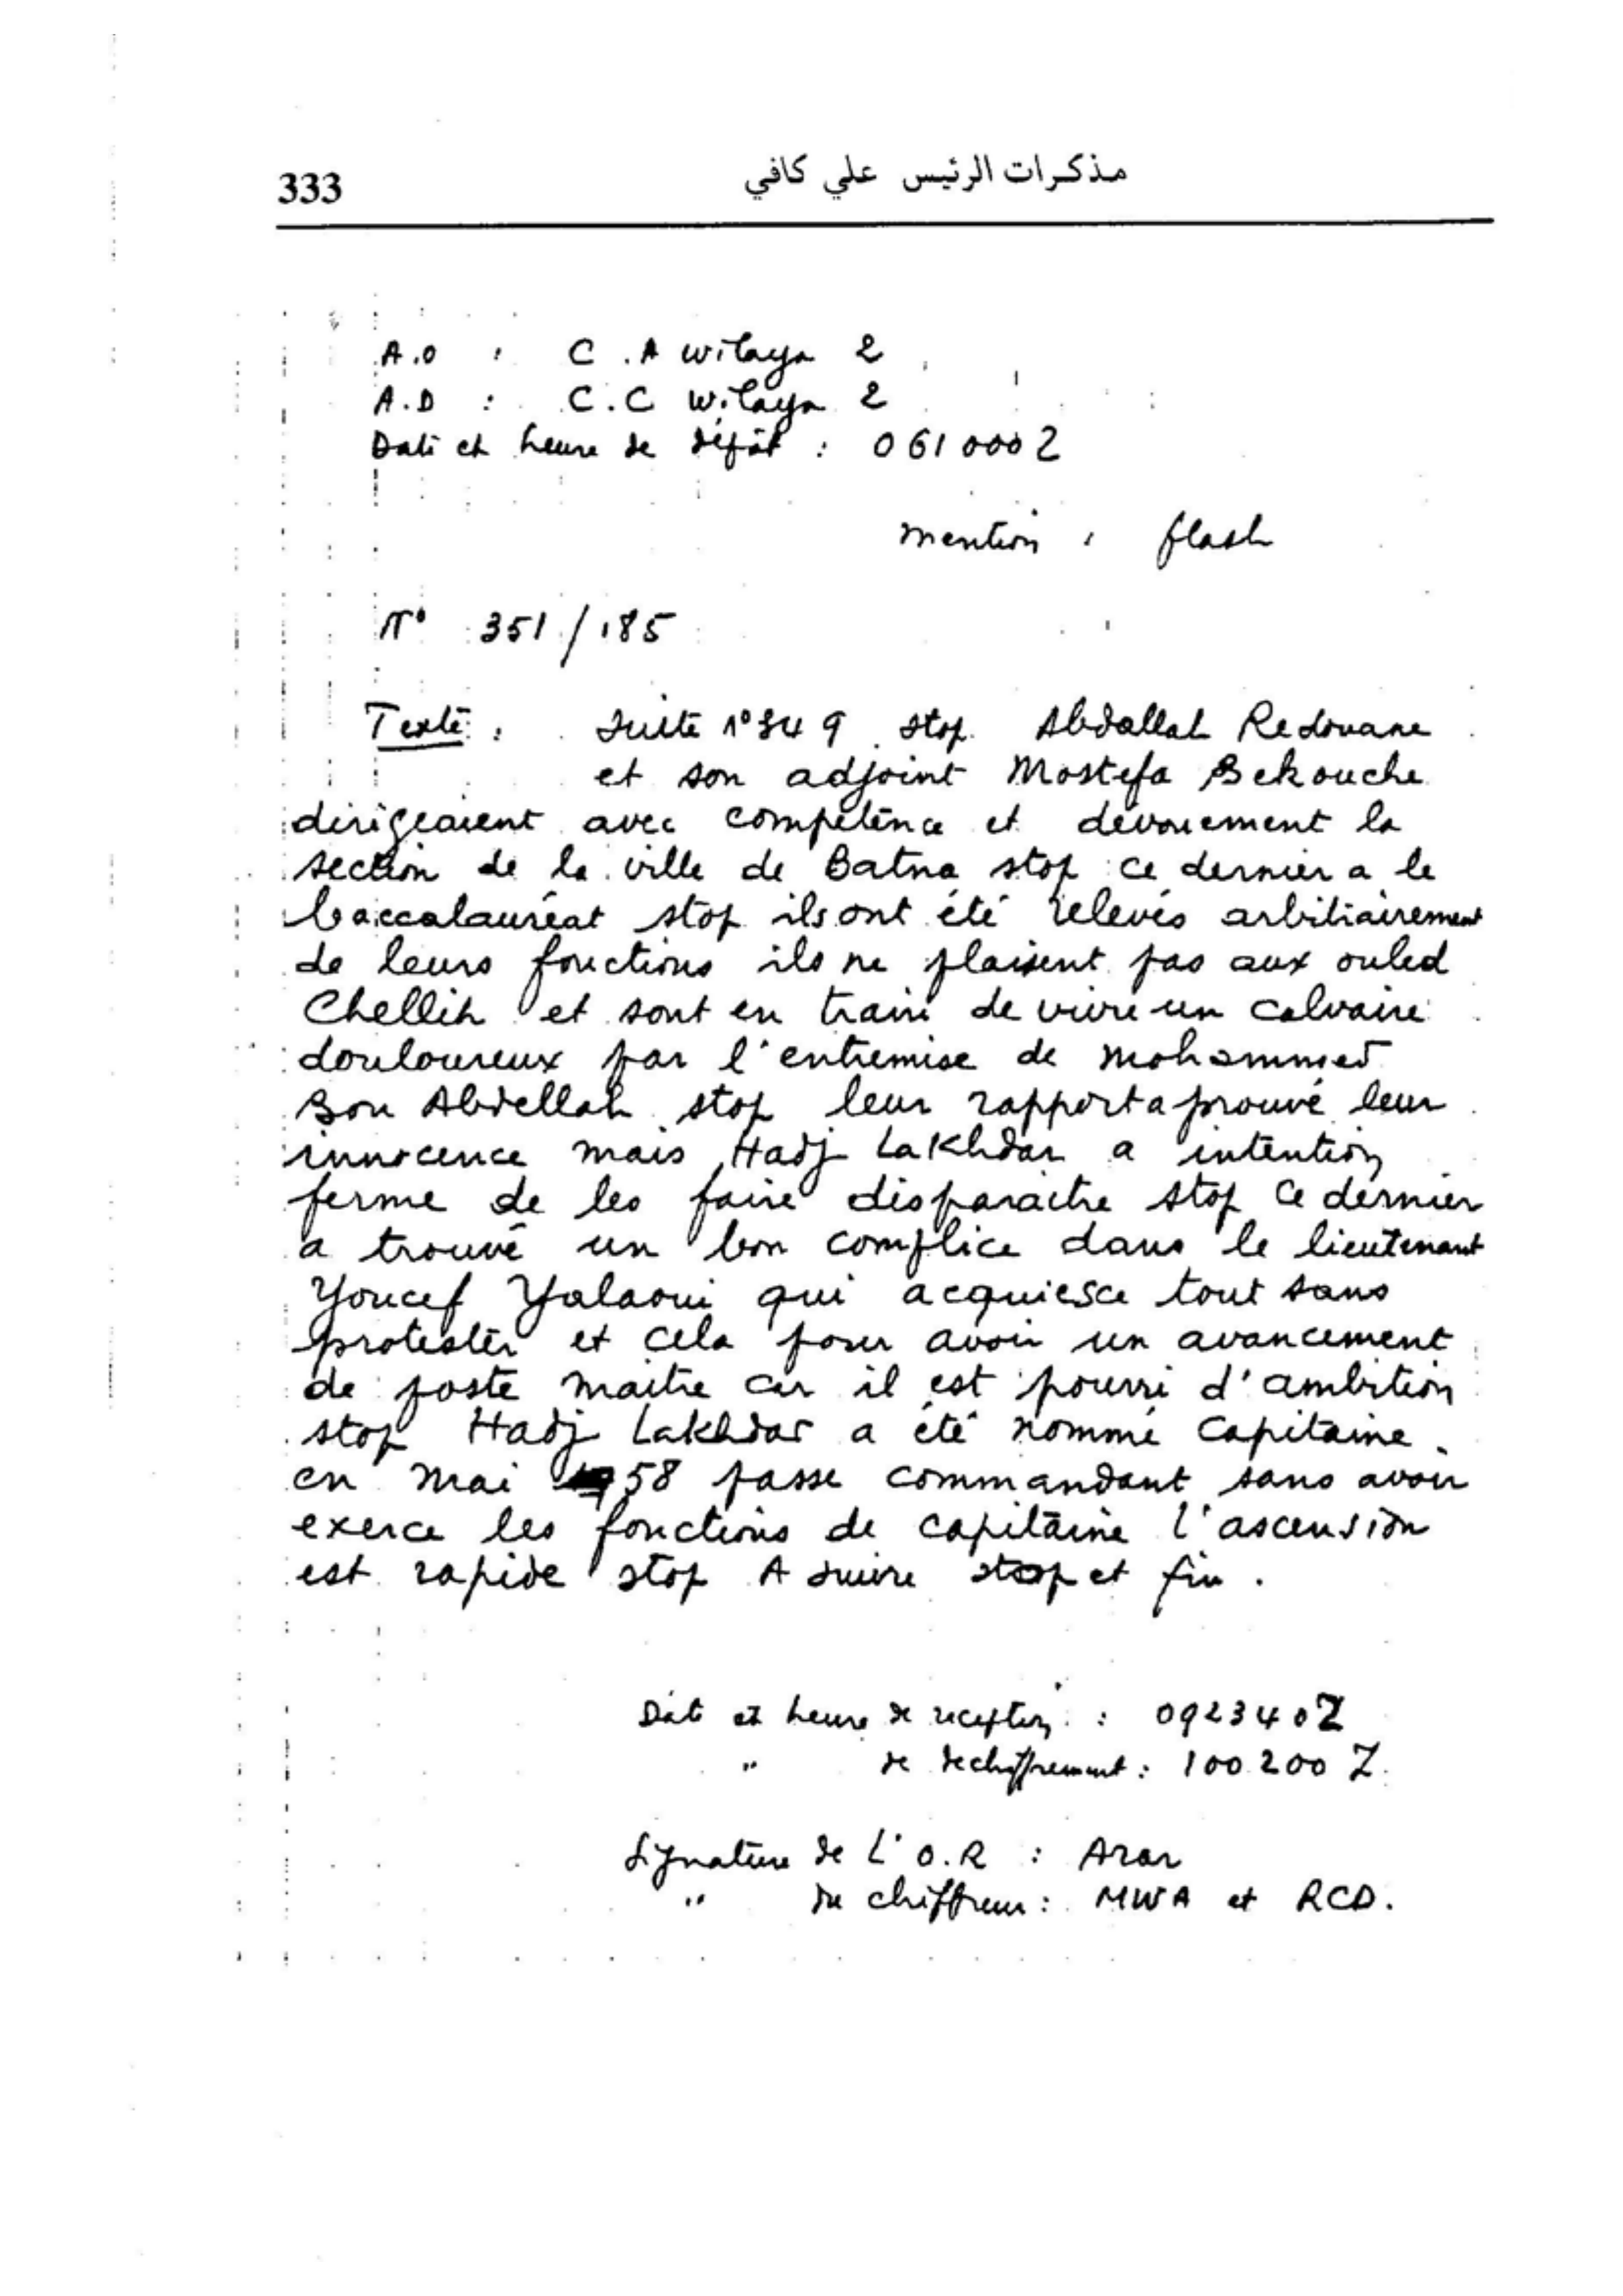 333
مذكرات الرئيس علي كافي
A.O : C.A wilaya 2
A.D : C.C wilaya 2
Date et heure de dépôt : 061000Z
mention : flash
N° 351/185
Texte : Suite n°349 stop Abdallah Redouane
et son adjoint Mostefa Bekouche
dirigeaient avec compétence et dévouement la
section de la ville de Batna stop ce dernier a le
baccalauréat stop ils ont été relevés arbitrairement
de leurs fonctions ils ne plaisent pas aux ouled
Chellih et sont en train de vivre un calvaire
douloureux par l'entremise de Mohammed
Bou Abdellah stop leur rapport a prouvé leur
innocence mais Hadj Lakhdar a intention
ferme de les faire disparaitre stop ce dernier
a trouvé un bon complice dans le lieutenant
Youcef Yalaoui qui acquiesce tout sans
protester et cela pour avoir un avancement
de poste maitre car il est pourri d'ambition
stop Hadj Lakhdar a été nommé capitaine
en mai 58 passe commandant sans avoir
exerce les fonctions de capitaine l'ascension
est rapide stop A suivre stop et fin .
Date et heure de reception : 092340Z
" de dechiffrement : 100200Z.
Signature de L'O.R : Arar
" du chiffreur : MWA et RCD.